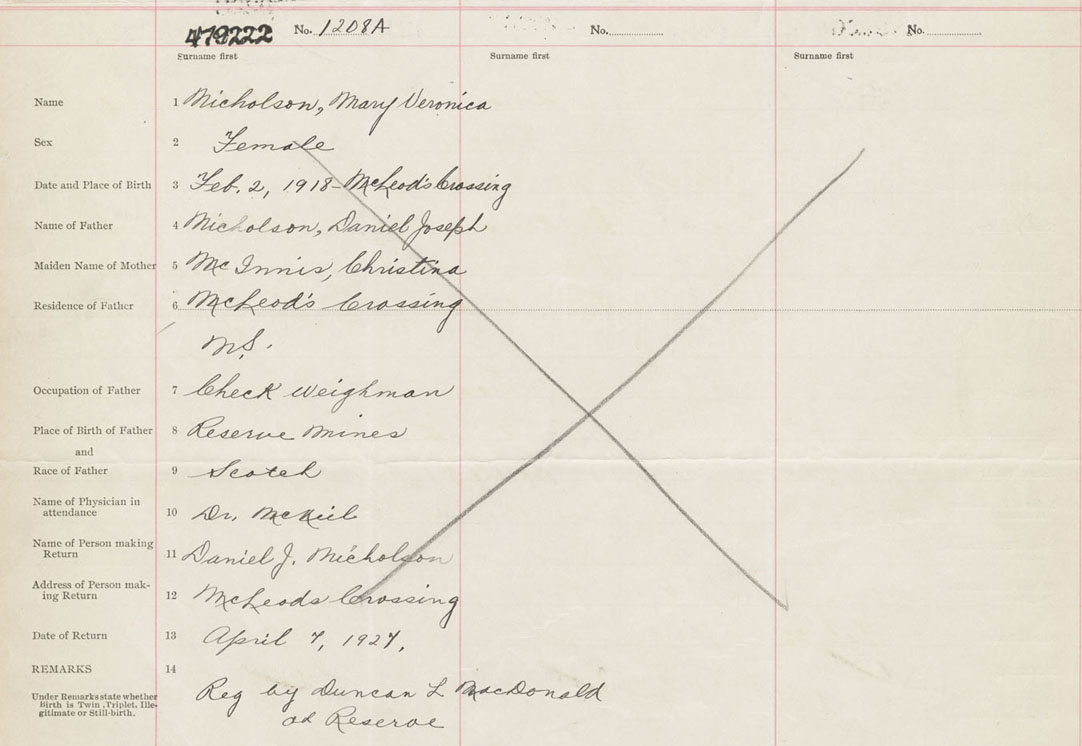 479222 No. 1208A No. No.
Surname first Surname first Surname first
Name 1 Nicholson, Mary Veronica
Sex 2 Female
Date and Place of Birth 3 Feb. 2, 1918 - McLeod's Crossing
Name of Father 4 Nicholson, Daniel Joseph
Maiden Name of Mother 5 McInnis, Christina
Residence of Father 6 McLeod's Crossing
N.S.
Occupation of Father 7 Check Weighman
Place of Birth of Father 8 Reserve Mines
and
Race of Father 9 Scotch
Name of Physician in
attendance 10 Dr. McNeil
Name of Person making
Return 11 Daniel J. Nicholson
Address of Person mak-
ing Return 12 McLeods Crossing
Date of Return 13 April 7, 1927.
REMARKS 14
Under Remarks state whether
Birth is Twin, Triplet, Ille-
gitimate or Still-birth.
Reg by Duncan L MacDonald
Reserve